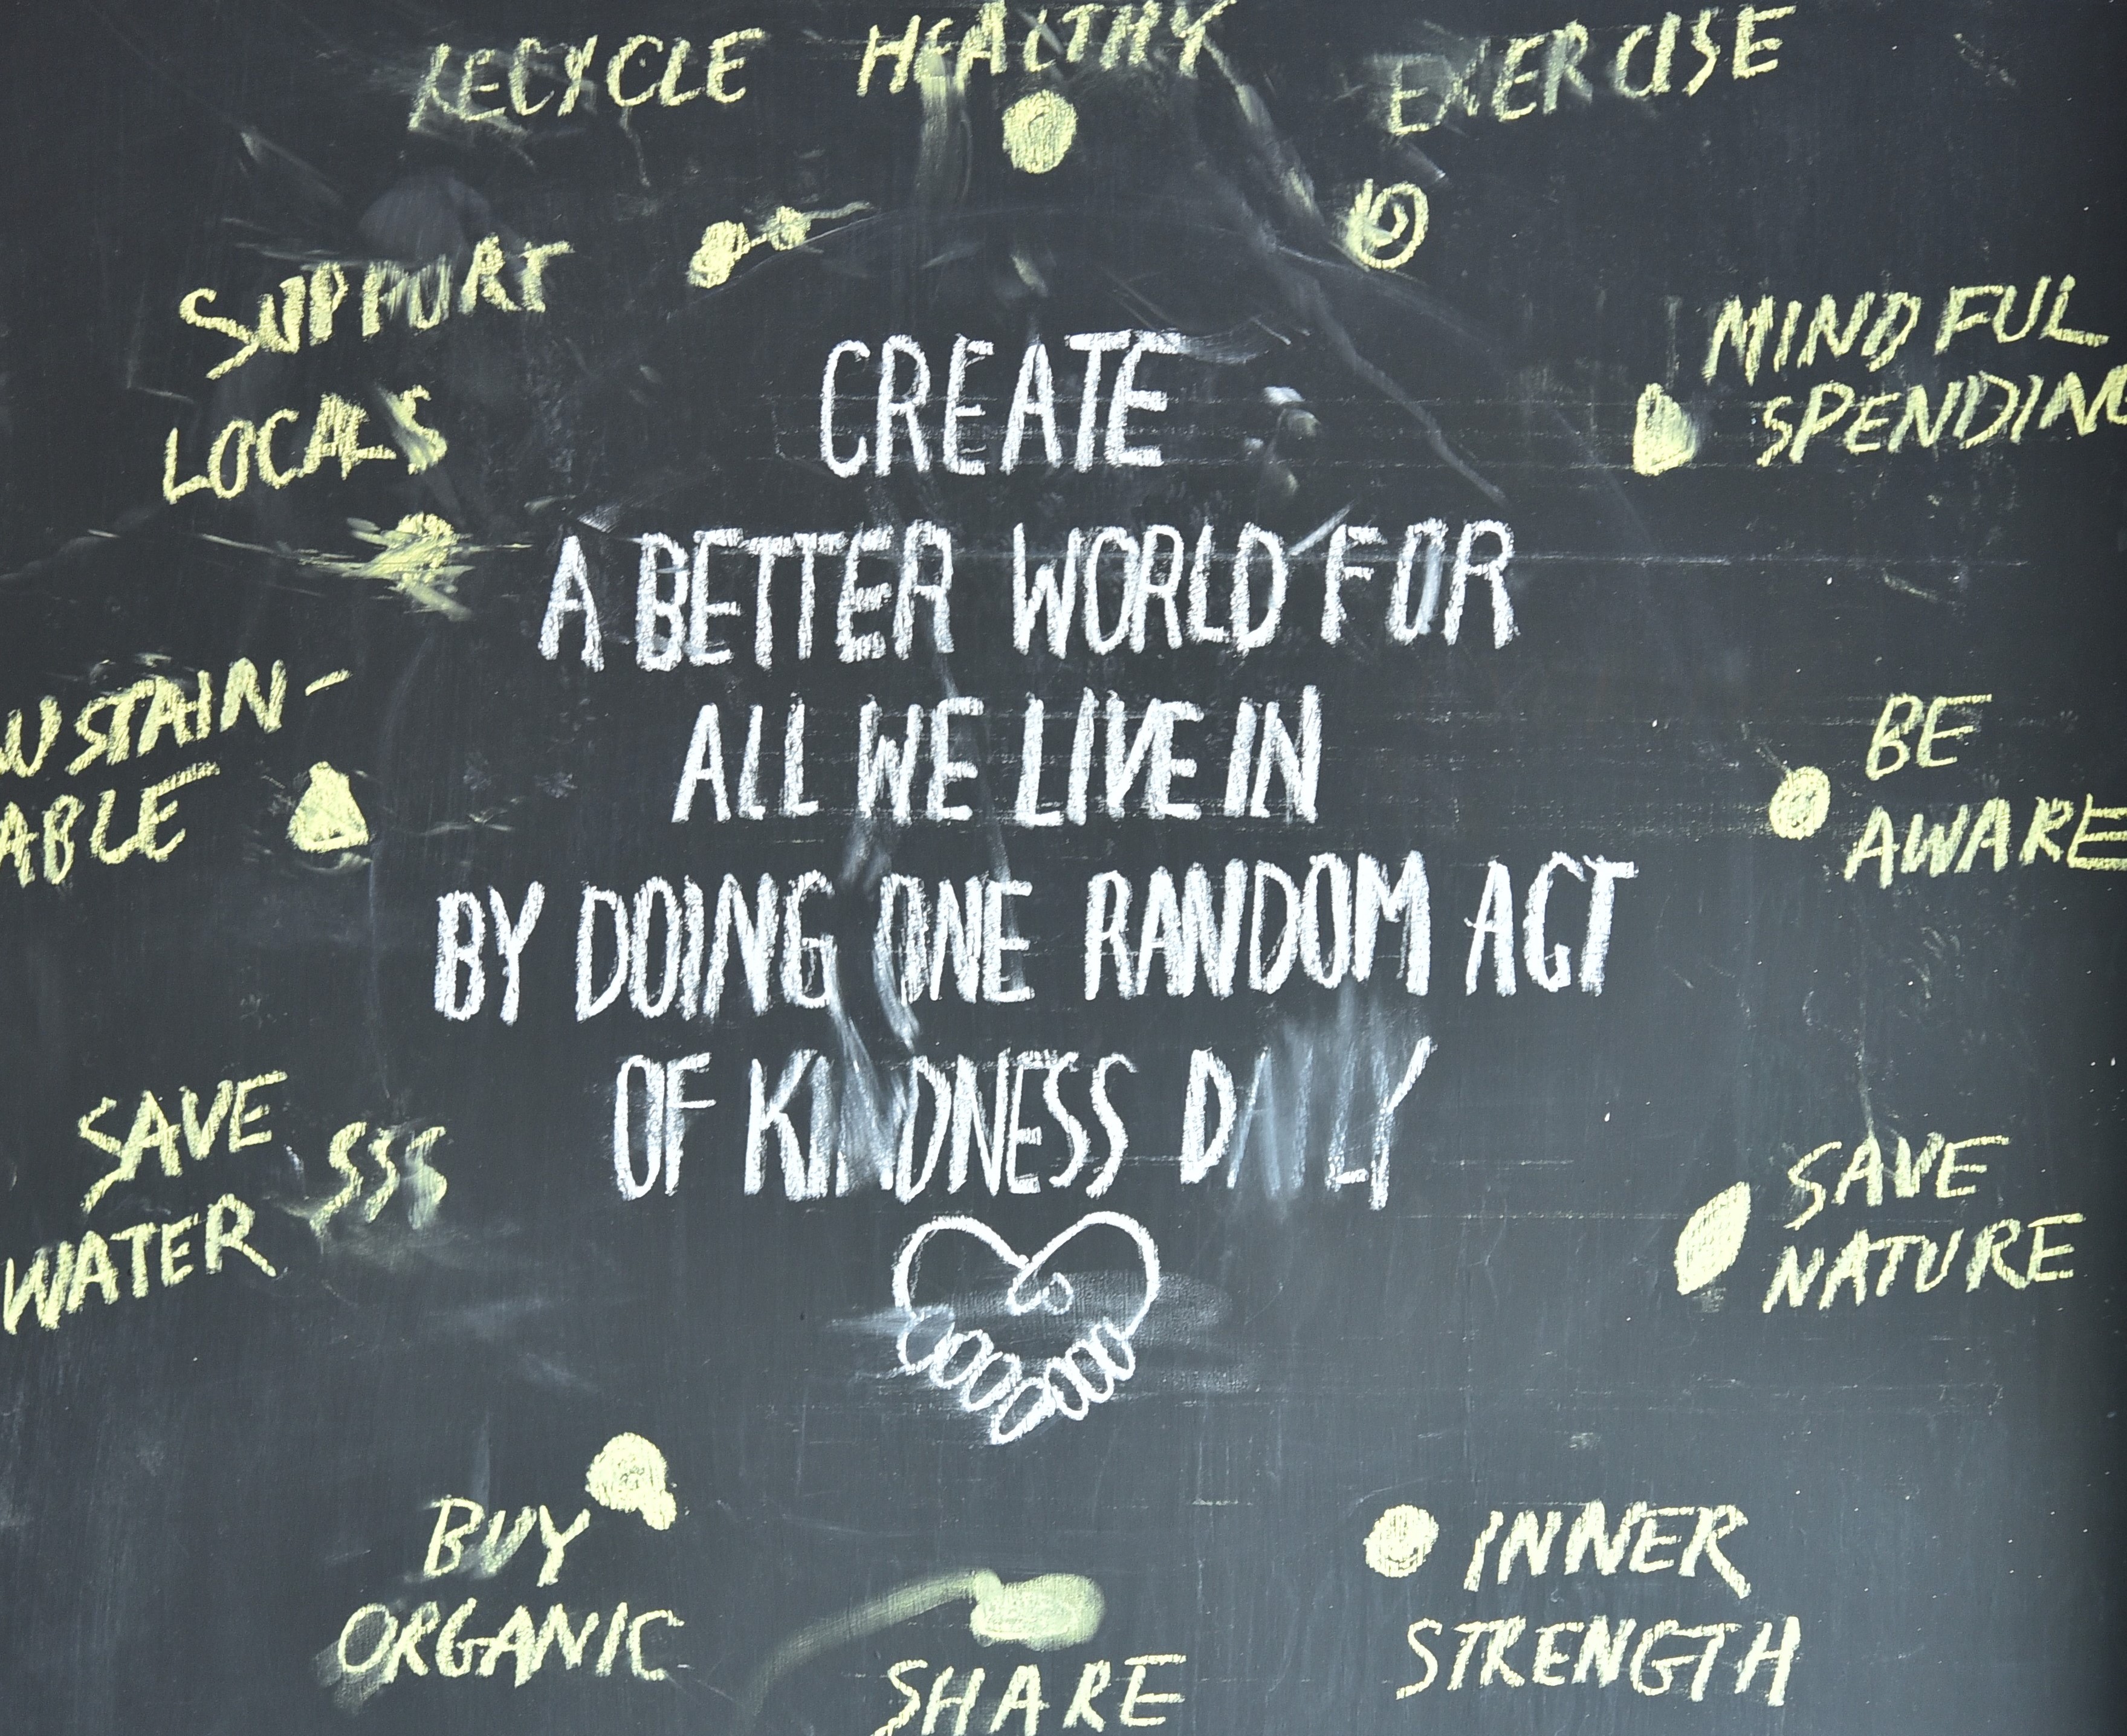 RECYCLE HEALTHY EXERCISE
SUPPORT
LOCALS
MINDFUL
SPENDING
CREATE
A BETTER WORLD FOR
ALL WE LIVE IN
BY DOING ONE RANDOM ACT
OF KINDNESS DAILY
USTAIN-
ABLE
BE
AWARE
SAVE
WATER
SAVE
NATURE
BUY
ORGANIC
SHARE
INNER
STRENGTH